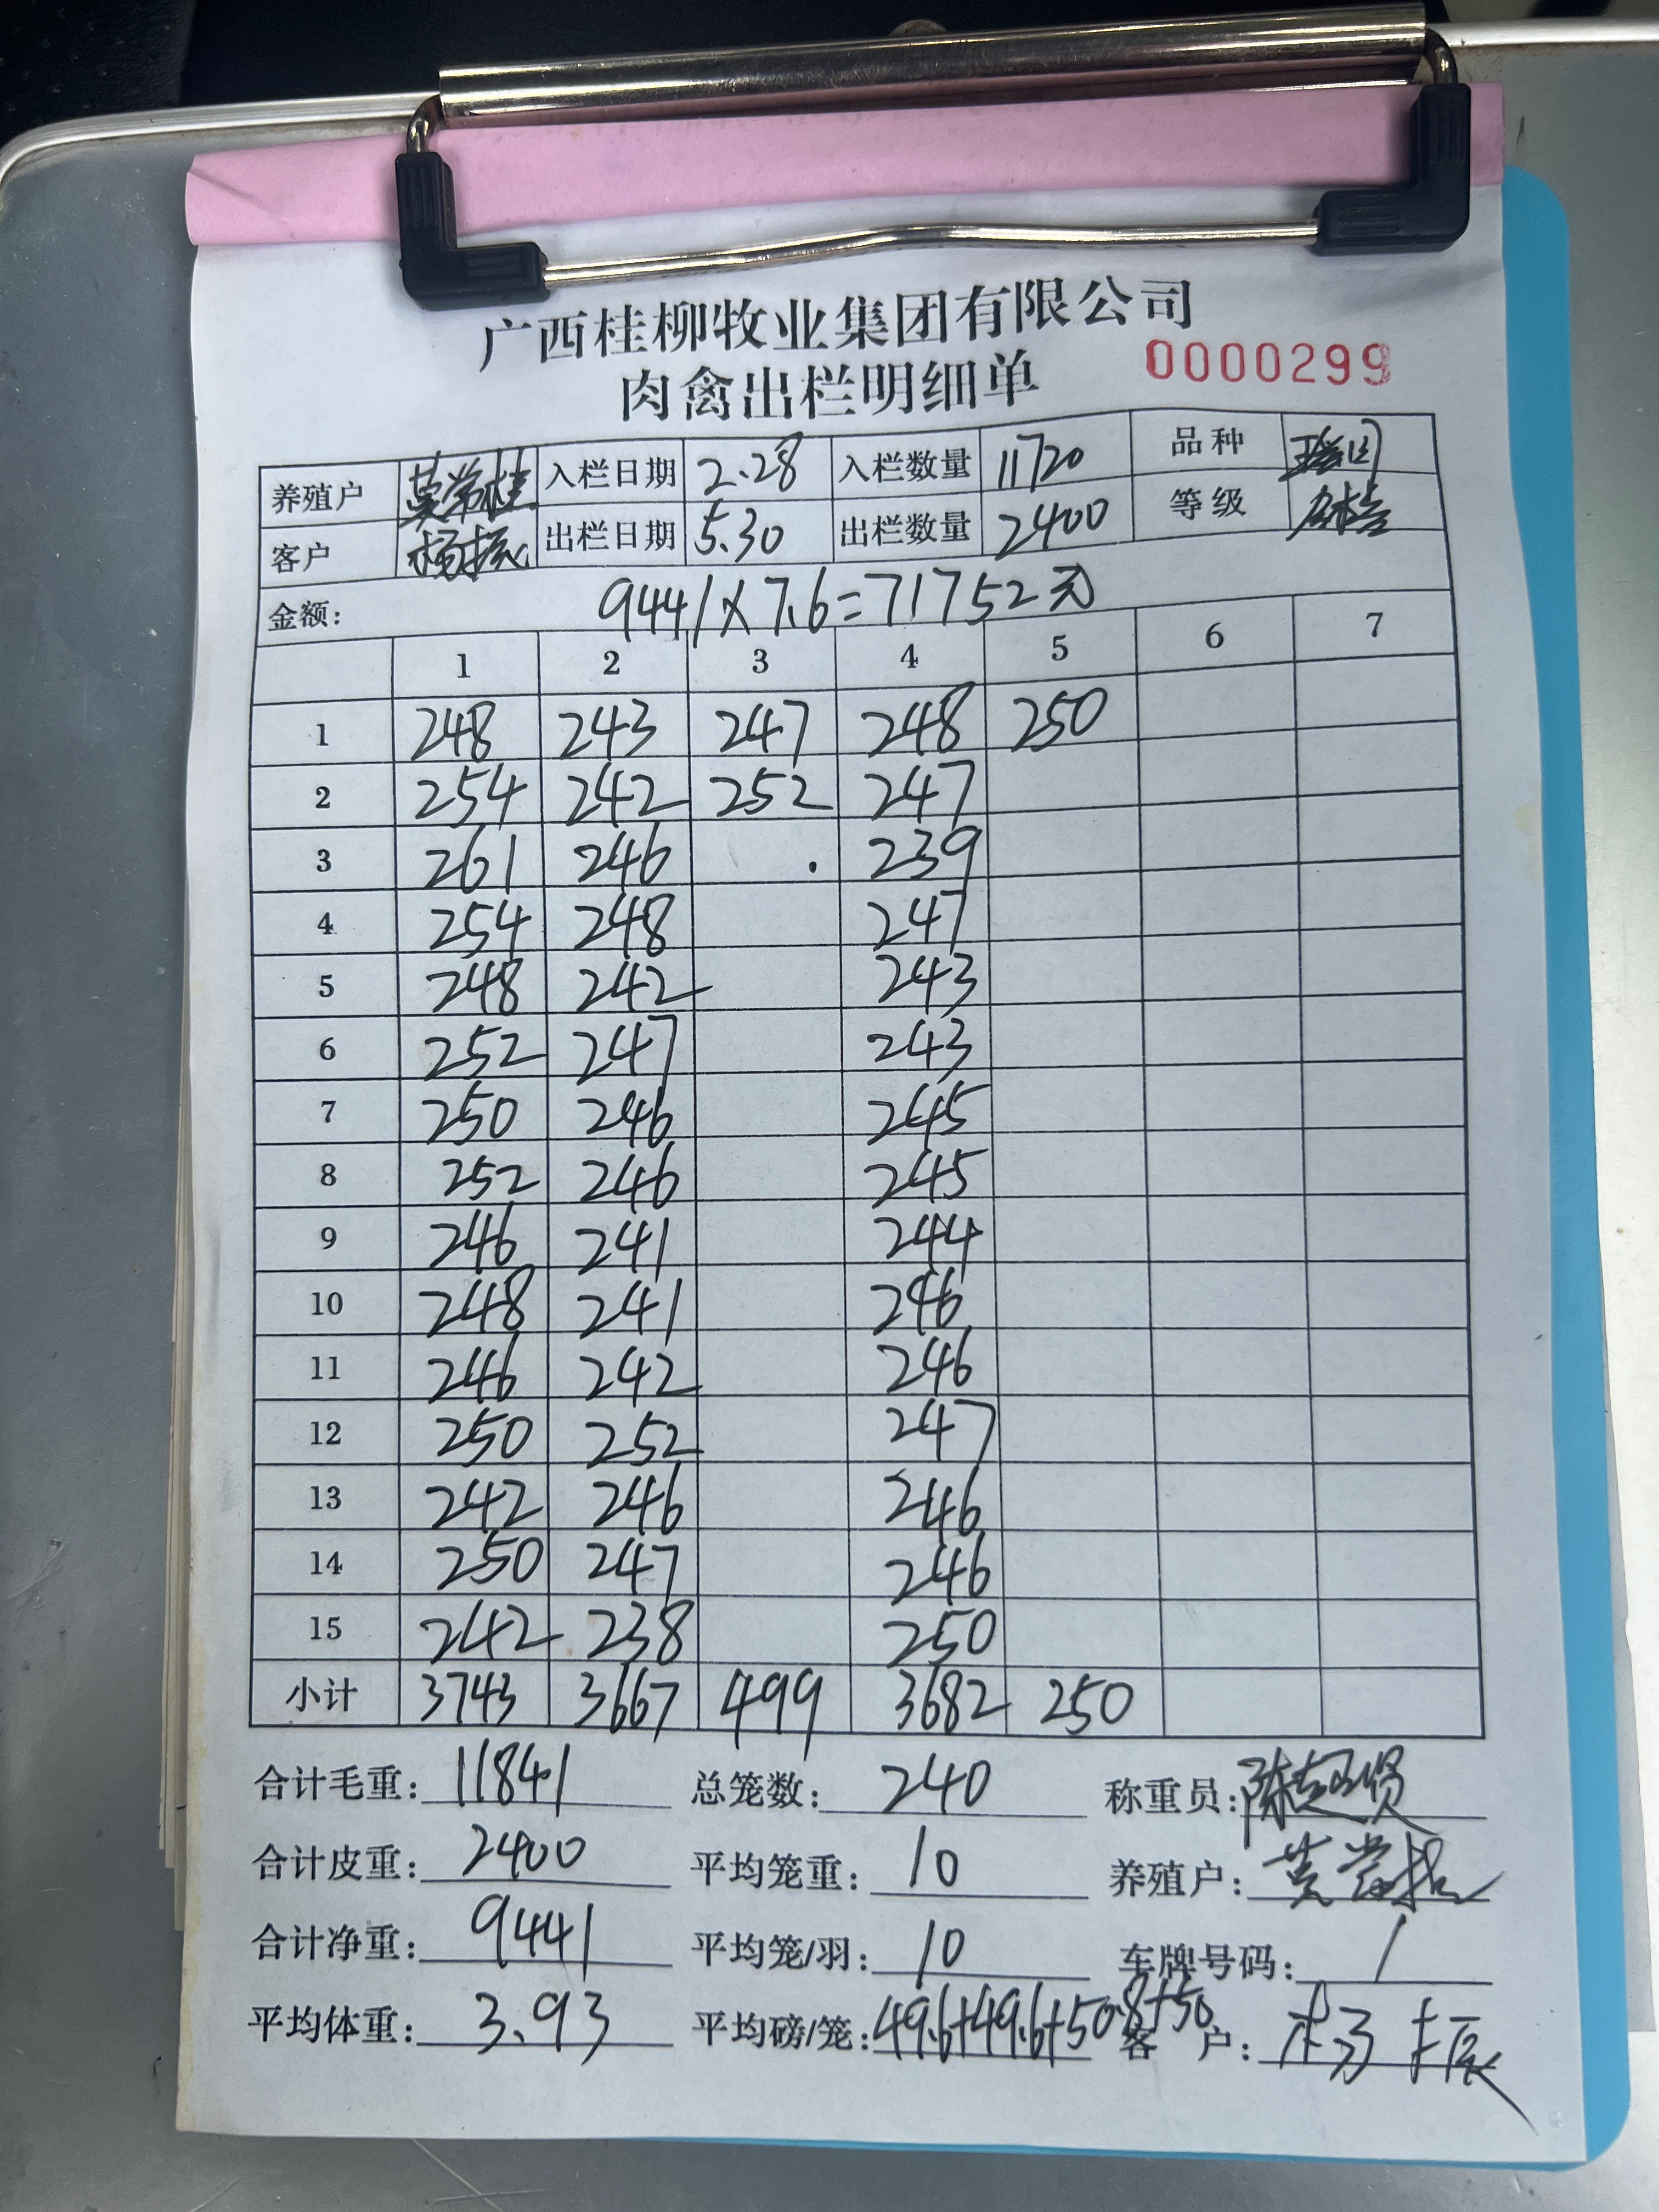 广西桂柳牧业集团有限公司
肉禽出栏明细单 0000299
养殖户 莫常桂 入栏日期 2.28 入栏数量 11720 品种
客户 杨振 出栏日期 5.30 出栏数量 2400 等级
金额: 9441×7.6=71752元
1 2 3 4 5 6 7
1 248 243 247 248 250
2 254 242 252 247
3 261 246 . 239
4 254 248 247
5 248 242 243
6 252 247 243
7 250 246 245
8 252 246 245
9 246 241 244
10 248 241 246
11 246 242 246
12 250 252 247
13 242 246 246
14 250 247 246
15 242 238 250
小计 3743 3667 499 3682 250
合计毛重: 11841 总笼数: 240 称重员:
合计皮重: 2400 平均笼重: 10 养殖户:
合计净重: 9441 平均笼/羽: 10 车牌号码: /
平均体重: 3.93 平均磅/笼: 49.6+49.6+50.8+50 客户: 杨振